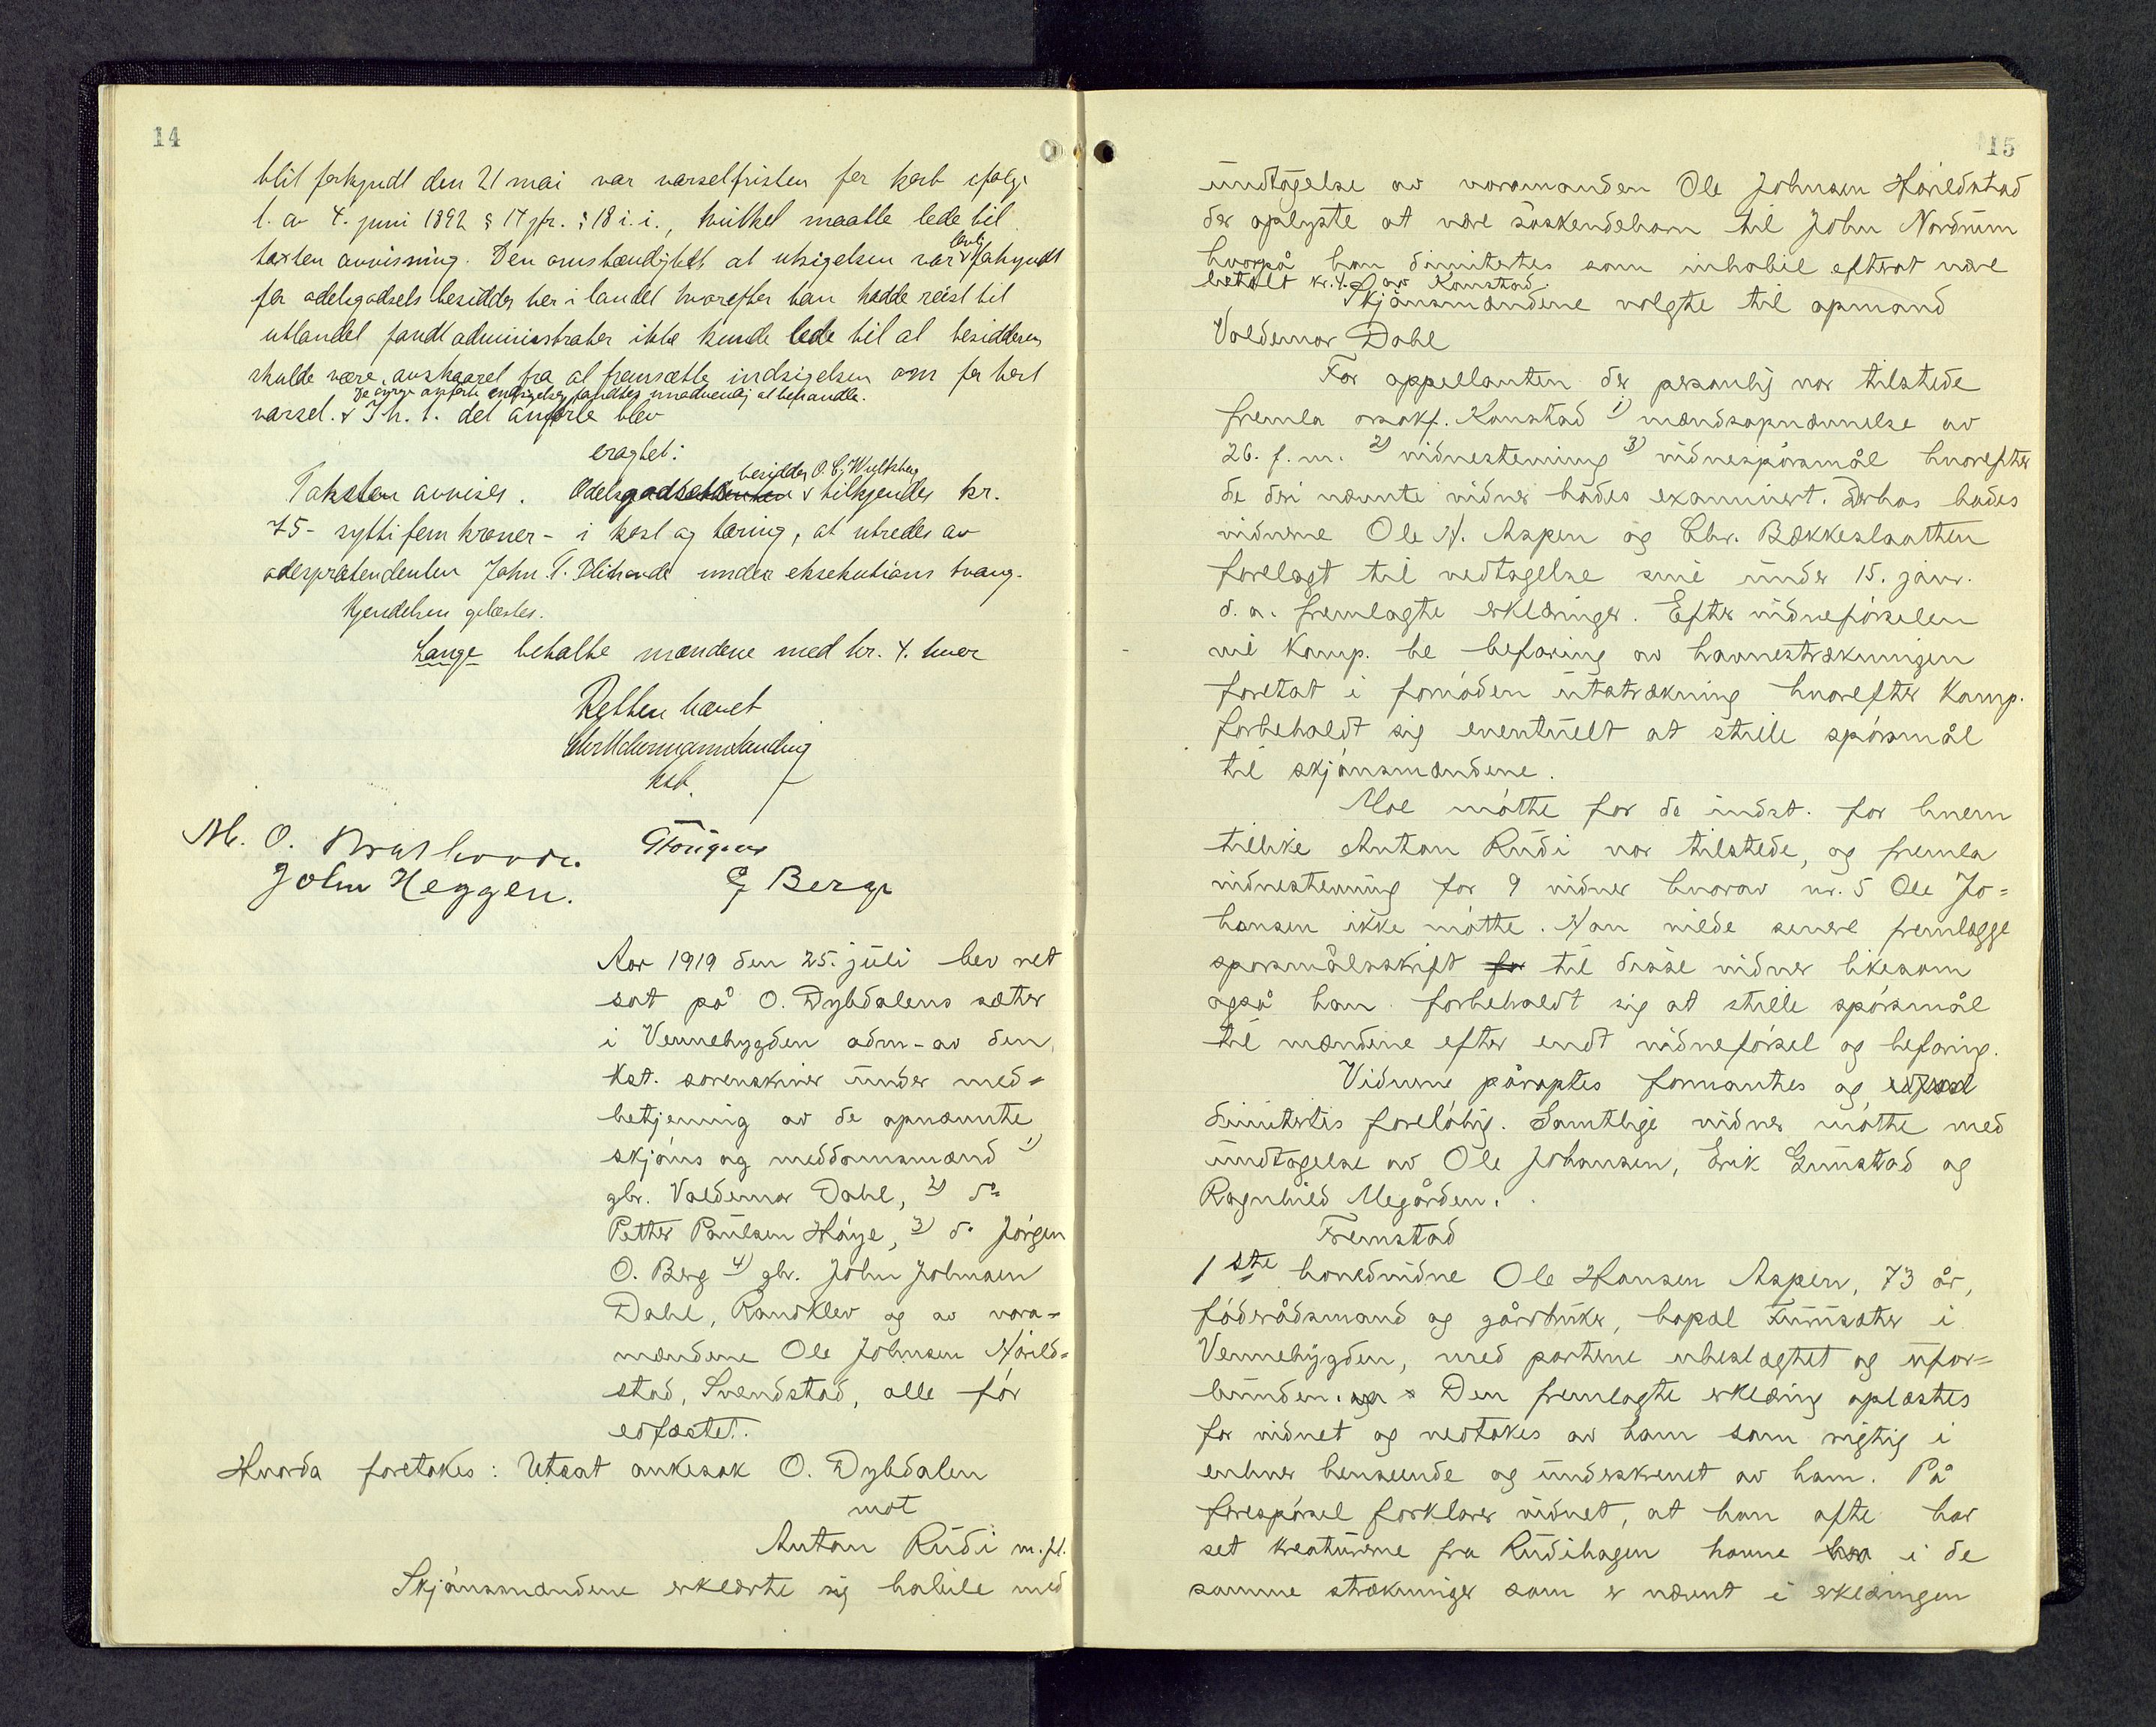 14
blit forkyndt den 21 mai var varselfristen for kort ifølge
l. av 4. juni 1892 § 17 jfr. § 18 i.i., hvilket maatte lede til
taxten avvisning. Den omstændighet at utsigelsen var lovlig forkyndt
for odelsgodsets besidder her i landet hvorefter han hadde reist til
utlandet fandt administrator ikke kunde lede til at besidderen
skulde være avskaaret fra at fremsætte indsigelsen om for kort
De øvrige anførte indsigelser fandtes unødvendig at behandle.
varsel. I h. t. det anførte blev
eragtet:
besidder O. Chr. Wultsberg
Taksten avvises. Odels tilkjendes kr.
75 - sytti fem kroner - i kost og tæring, at utredes av
odelsprætendenten John T. under eksekutions tvang.
Kjendelsen oplæstes.
Lange betalte mændene med kr. 4. hver
Retten hævet
kst.
M. O.
John Heggen. Berg
Aar 1919 den 25. juli blev ret
sat på O. Dybdalens sæter
i Vennebygden adm. av den
kst. sorenskriver under med=
betjening av de opnævnte
skjøns og meddomsmænd 1)
gbr. Valdemar Dahl, 2) do
Petter Paulsen Høye, 3) do Jørgen
O. Berg 4) gbr. John Johnsen
Dahl, Randklev og av vara=
mændene Ole Johnsen Harild=
stad, Svendstad, alle før
edfæstet.
Hvorda foretokes: Utsat ankesak O. Dybdalen
mot
Anton Rudi m. fl.
Skjønsmændene erklærte sig habile med
15
undtagelse av varamanden Ole Johnsen Harildstad
der oplyste at være søskendebarn til John Nordrum
hvorpå han dimitertes som inhabil efterat være
betalt kr. 4. av Konstad.
Skjønsmændene valgte til opmand
Valdemar Dahl
For appellanten der personlig var tilstede
fremla osakf. Konstad 1) mændsopnævnelse av
26. f. m. 2) vidnestevning 3) vidnespørsmål hvorefter
de deri nævnte vidner bådes examinert. Derhos bådes
vidnerne Ole H. Aspen og Chr. Bækkeslaatten
forelagt til vedtagelse sine under 15. janr.
d. a. fremlagte erklæringer. Efter vidneførselen
vil komp. be befaring av havnestrækningen
foretat i fornøden utstrækning hvorefter komp.
forbeholdt sig eventuelt at stille spørsmål
til skjønsmændene.
Moe møtte for de indst. for hvem
tillike Anton Rudi var tilstede, og fremla
vidnestevning for 9 vidner hvorav nr. 5 Ole Jo=
hansen ikke møtte. Han vilde senere fremlægge
spørsmålsskrift for til disse vidner likesom
også han forbeholdt sig at stille spørsmål
til mændene efter endt vidneførsel og befaring.
Vidnerne påroptes formantes og
dimitertes foreløbig. Samtlige vidner møtte med
undtagelse av Ole Johansen, Erik Grimstad og
Ragnhild Megården.
Fremstod
1ste hovedvidne Ole Hansen Aspen, 73 år,
føderådsmand og gårdbruker, bopæl Furusæter i
Vennebygden, med partene ubeslægtet og ufor=
bunden. Den fremlagte erklæring oplæstes
for vidnet og vedtokes av ham som rigtig i
enhver henseende og underskrevet av ham. På
forespørsel forklarer vidnet, at han ofte har
set kreaturerne fra Rudihagen havne i de
samme strækninger som er nævnt i erklæringen